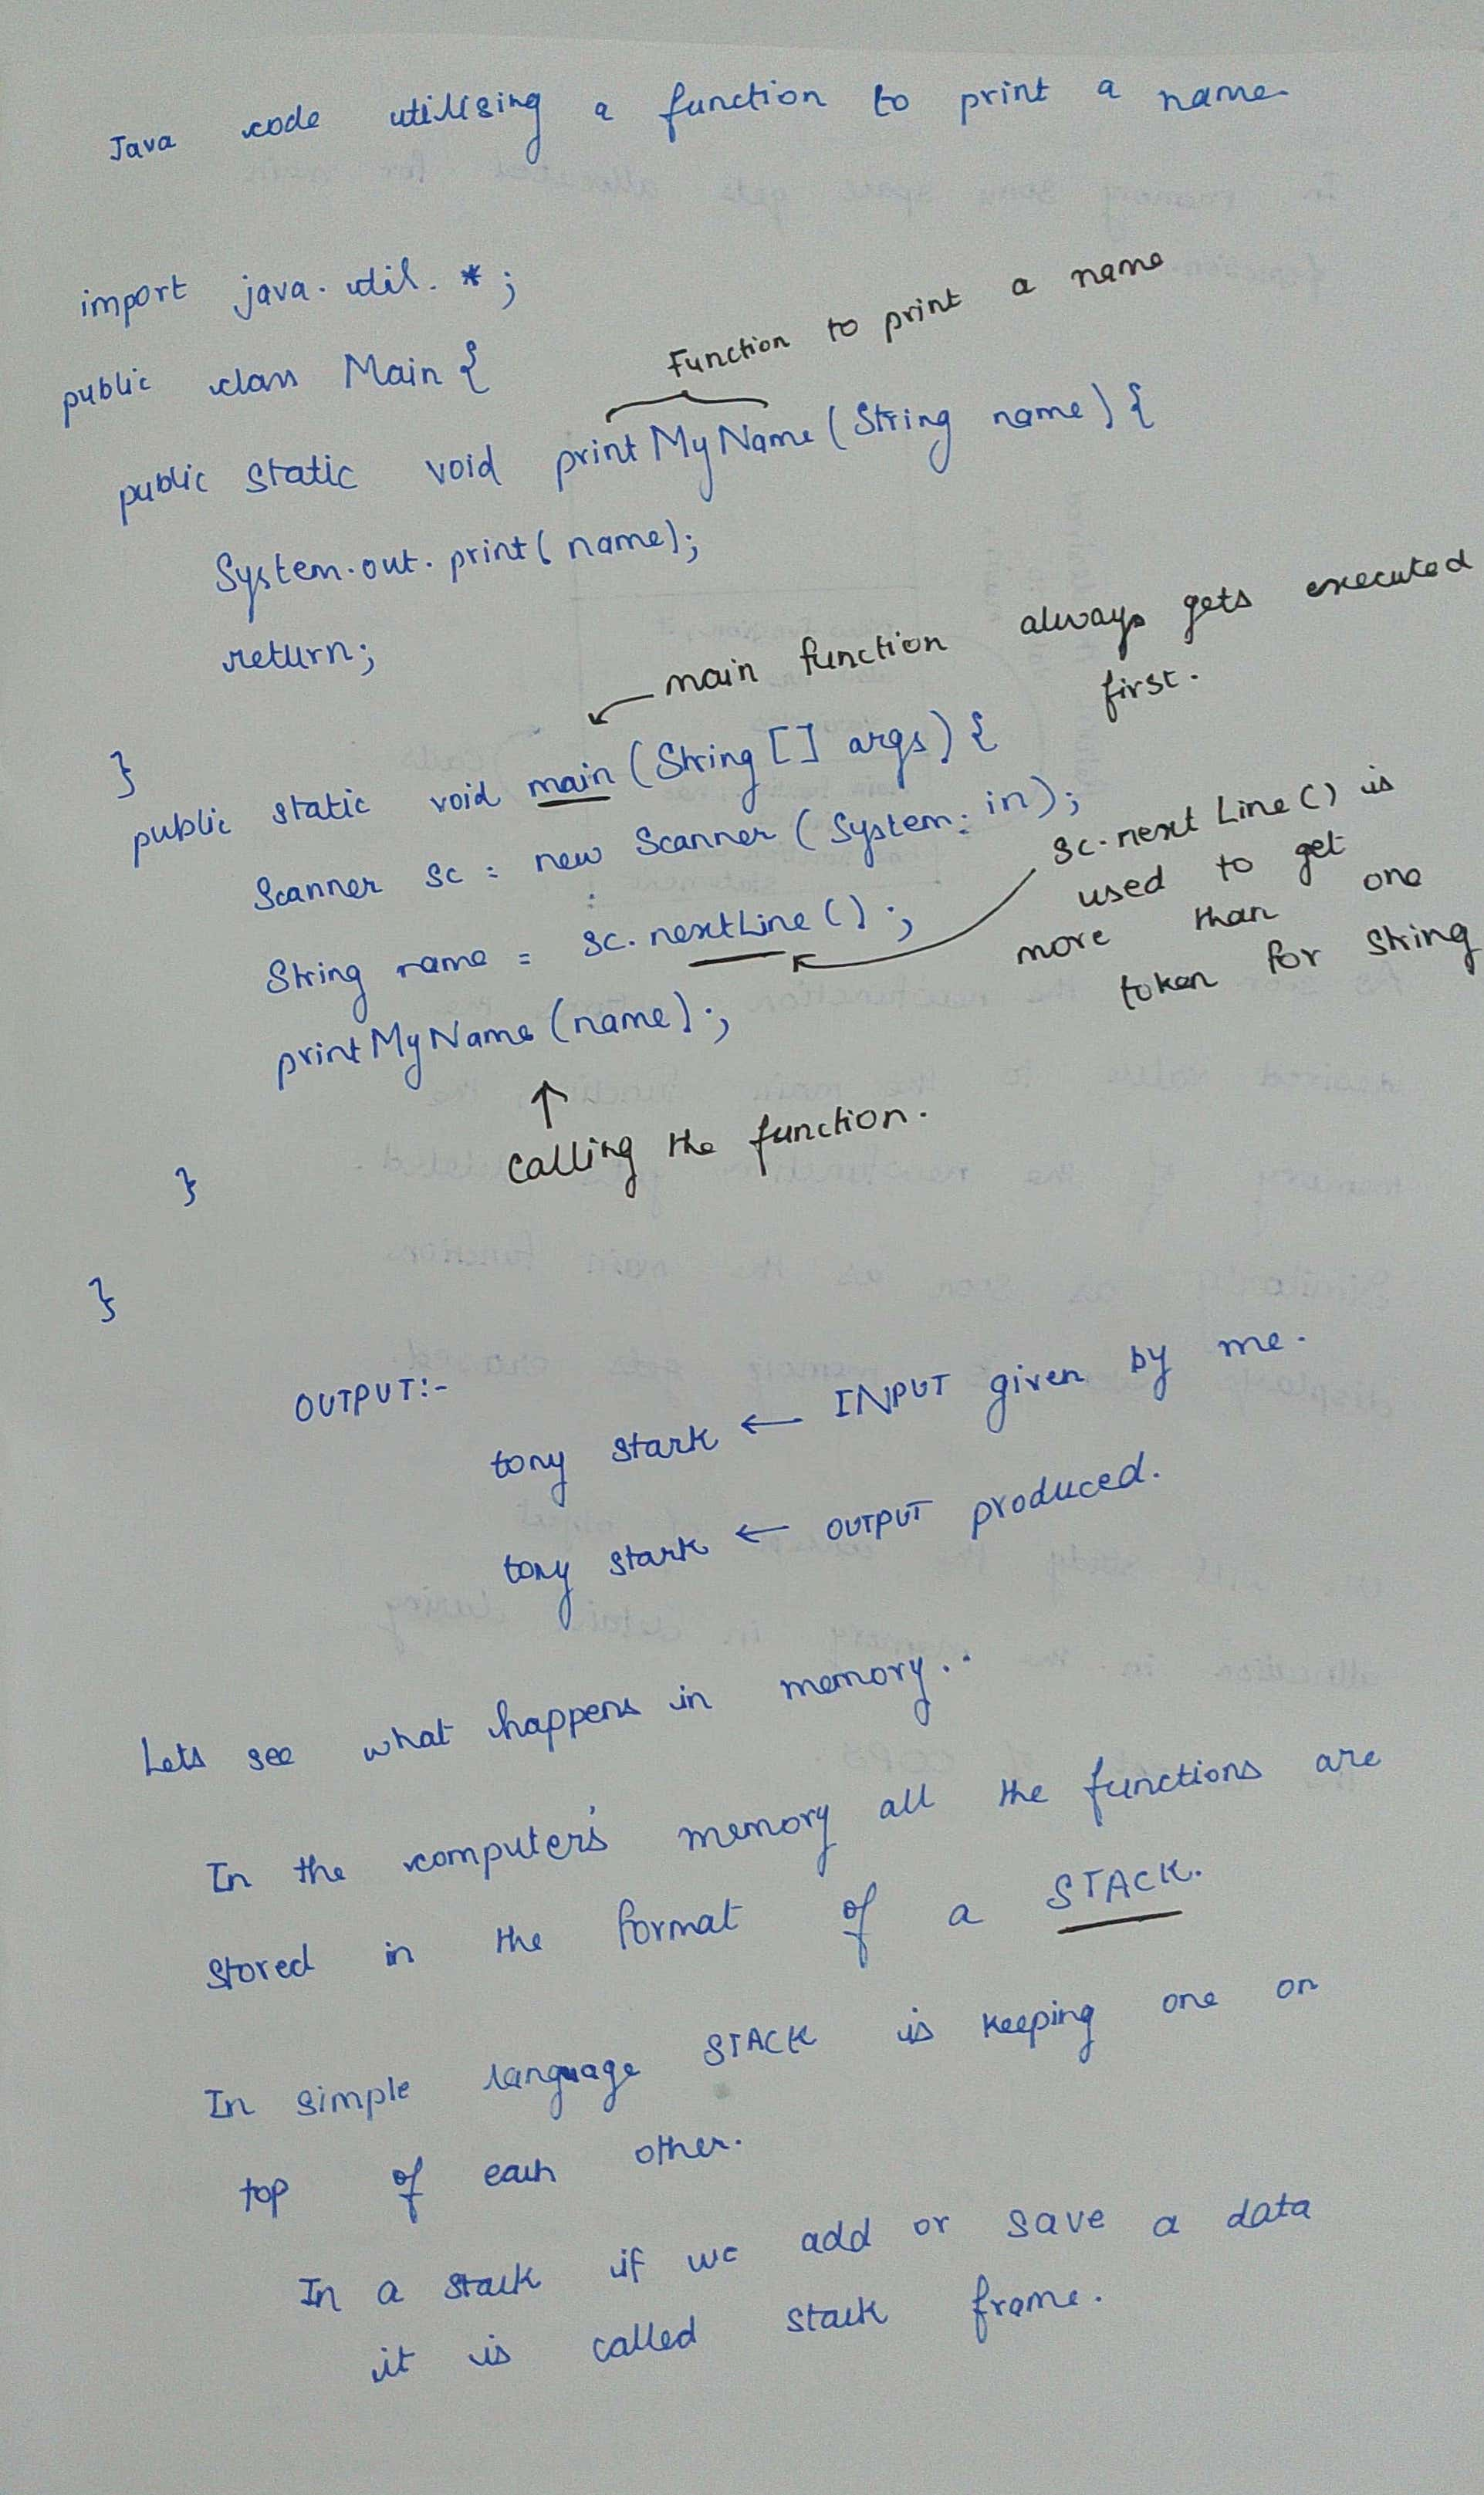 Java code utilising a function to print a name
import java.util.*;
public class Main {
Function to print a name
public static void printMyName (String name) {
System.out.print(name);
return;
}
main function always gets executed
first.
public static void main (String [] args) {
Scanner sc = new Scanner (System.in);
String name = sc.nextLine();
sc.next Line() is
used to get
more than one
token for String
printMyName (name);
↑
calling the function.
}
}
OUTPUT:-
tony stark ← INPUT given by me.
tony stark ← OUTPUT produced.
Lets see what happens in memory..
In the computer's memory all the functions are
stored in the format of a STACK.
In simple language STACK is keeping one on
top of each other.
In a stack if we add or save a data
it is called stack frame.